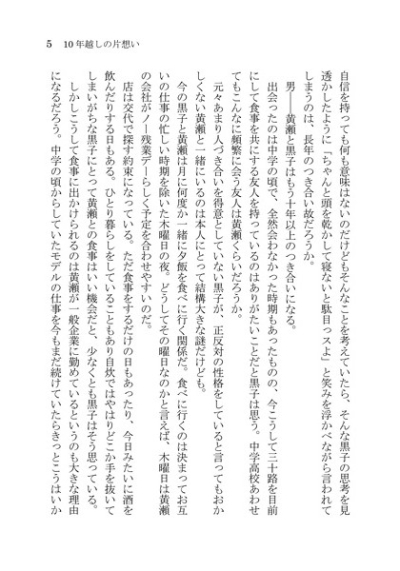 5　10年越しの片想い
自信を持っても何も意味はないのだけどもそんなことを考えていたら、そんな黒子の思考を見
透かしたように「ちゃんと頭を乾かして寝ないと駄目っスよ」と笑みを浮かべながら言われて
しまうのは、長年のつき合い故だろうか。
男――黄瀬と黒子はもう十年以上のつき合いになる。
出会ったのは中学の頃で、全然会わなかった時期もあったものの、今こうして三十路を目前
にして食事を共にする友人を持っているのはありがたいことだと黒子は思う。中学高校あわせ
てもこんなに頻繁に会う友人は黄瀬くらいだろうか。
元々あまり人づき合いを得意としていない黒子が、正反対の性格をしていると言ってもおか
しくない黄瀬と一緒にいるのは本人にとって結構大きな謎だけども。
今の黒子と黄瀬は月に何度か一緒に夕飯を食べに行く関係だ。食べに行くのは決まってお互
いの仕事の忙しい時期を除いた木曜日の夜。どうしてその曜日なのかと言えば、木曜日は黄瀬
の会社がノー残業デーらしく予定を合わせやすいのだ。
店は交代で探す約束になっている。ただ食事をするだけの日もあったり、今日みたいに酒を
飲んだりする日もある。ひとり暮らしをしていることもあり自炊ではやはりどこか手を抜いて
しまいがちな黒子にとって黄瀬との食事はいい機会だと、少なくとも黒子はそう思っている。
しかしこうして食事に出かけられるのは黄瀬が一般企業に勤めているというのも大きな理由
になるだろう。中学の頃からしていたモデルの仕事を今もまだ続けていたらきっとこうはいか